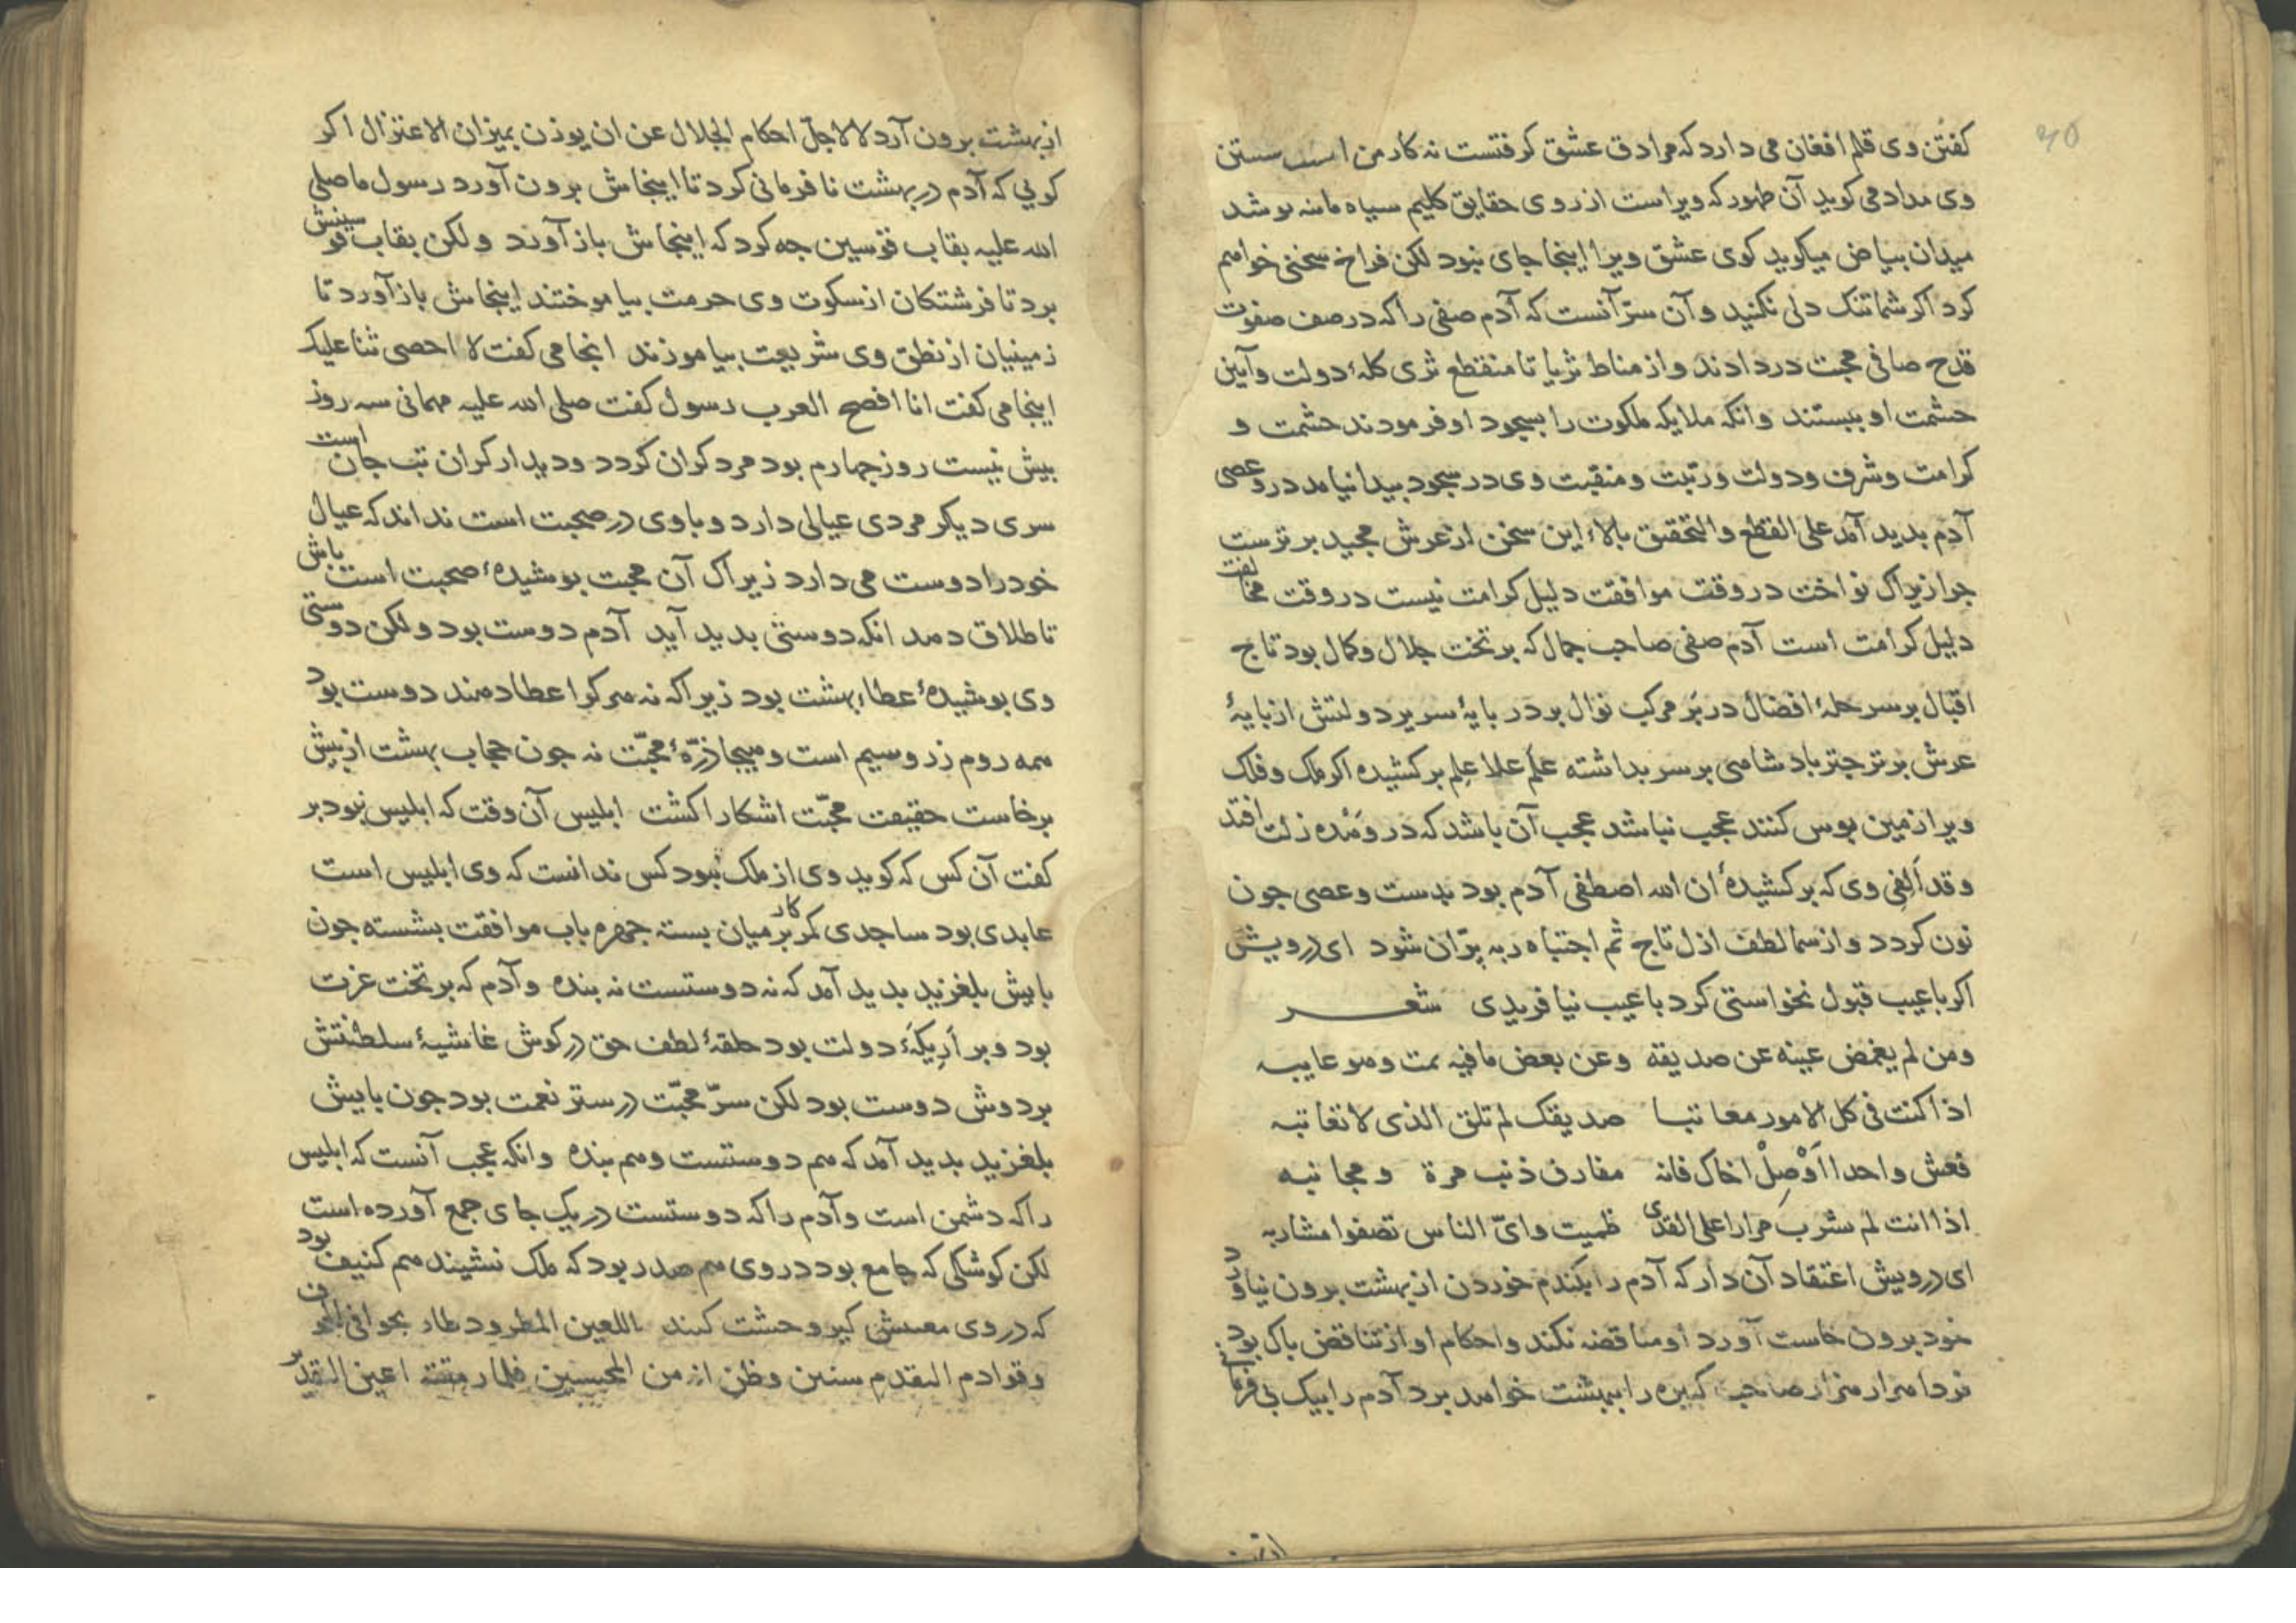 ۳۵
كفتن وى قلم افغان مى دارد كه مرا دق عشق كرفتست نه كار من است
وى مداد مى كويد آن طهور كه ويراست از روى حقايق كليم سياه ما بنه بوشد
ميدان بياض ميكويد كوى عشق ويرا اينجا جاى نبود لكن فراخ سخنى خواهم
كرد اكر شما تنك دلى نكنيد و آن سرّ آنست كه آدم صفى را كه در صف صفوت
قدح صافى محبت در دادند و از مناط ثريا تا منقطع ثرى كلهٔ دولت و آيين
حشمت او ببستند و انكه ملايكه ملكوت را بسجود او فرمودند حشمت و
كرامت و شرف و دولت و رتبت و منقبت وى در سجود بيدا نيامد در وعصى
آدم بديد آمد على القطع والتحقيق بالاء اين سخن از عرش مجيد برترست
جرا زيراك نواخت در وقت موافقت دليل كرامت نيست در وقت مخالفت
دليل كرامت است آدم صفى صاحب جمال كه بر تخت جلال و كمال بود تاج
اقبال بر سر حلهٔ افضال در بَر مركب نوال بر در بايهٔ سرير دولتش از بايهٔ
عرش برتر جتر بادشاهى بر سر بداشته عَلَم علا عِلم بر كشيده اكر ملك و فلك
ويرا زمين بوس كنند عجب نباشد عجب آن باشد كه در وَهْده زلت افتد
و قد اَلِفى وى كه بر كشيدهٔ ان الله اصطفى آدم بود بدست وعصى جون
نون كردد و از سما لطف ازل تاج ثم اجتباه ربه برّان شود اى درويش
اكر با عيب قبول نخواستى كرد با عيب نيافريدى شعر
ومن لم يغمض عينه عن صديقه وعن بعض ما فيه يمت وهو عايبه
اذا كنت فى كل الامور معاتبا صديقك لم تلق الذى لا تعاتبه
فعش واحدا اَوْصِلْ اخاك فانه مفارق ذنب مرة ومجانبه
اذا انت لم تشرب مرارا على القذى ظميت واىّ الناس تصفوا مشاربه
اى درويش اعتقاد آن دار كه آدم را بكندم خوردن از بهشت برون نياورد
خود برون خاست آورد او مناقضه نكند و احكام او از تناقض باك بود
فردا هزار هزار صاحب كبيره را ببهشت خواهد برد آدم را بيك بى فرمانى
از بهشت برون آرد لا لاجلّ احكام الجلال عن ان يوذن بميزان الاعتزال اكر
كويى كه آدم در بهشت نا فرمانى كرد تا اينجاش برون آورد رسول ما صلى
الله عليه بقاب قوسين جه كرد كه اينجاش باز آورند ولكن بقاب قوسينش
برد تا فرشتكان از سكوت وى حرمت بياموختند اينجاش باز آورد تا
زمينيان از نطق وى شريعت بياموزند انجا مى كفت لا احصى ثنا عليك
اينجا مى كفت انا افصح العرب رسول كفت صلى الله عليه مهمانى سه روز
بيش نيست روز جهارم بود مرد كران كردد و ديدار كران تب جان است
سرى ديكر مردى عيالى دارد و با وى در صحبت است نداند كه عيال
خود را دوست مى دارد زيراك آن محبت بوشيدهٔ صحبت است باش
تا طلاق دهد انكه دوستى بديد آيد آدم دوست بود ولكن دوستى
وى بوشيدهٔ عطاء بهشت بود زيرا كه نه هر كرا عطا دهند دوست بود
همه روم زر و سيم است و هيجا ذرّهٔ محبّت نه جون حجاب بهشت از بيش
برخاست حقيقت محبّت اشكارا كشت ابليس آن وقت كه ابليس نبود بر
كفت آن كس كه كويد وى از ملك نبود كس ندانست كه وى ابليس است
عابدى بود ساجدى كمر كار بر ميان بسته جهره باب موافقت بشسته جون
بايش بلغزيد بديد آمد كه نه دوستست نه بنده و آدم كه بر تخت عزت
بود و بر اَرِيكَهٔ دولت بود حلقهٔ لطف حق در كوش غاشيهٔ سلطنتش
بر دوش دوست بود لكن سرّ محبّت در ستر نعمت بود جون بايش
بلغزيد بديد آمد كه هم دوستست و هم بنده و انكه عجب آنست كه ابليس
را كه دشمن است و آدم را كه دوستست در يك جاى جمع آورده است
لكن كوشكى كه جامع بود در وى هم صدر بود كه ملك نشيند هم كنيف بود
كه در وى وحشت كنند اللعين المطرود طار بخوافى الخوف
وقوادم التقدم سنين وظن انه من المحبسين فلما رمقته اعين التقدير